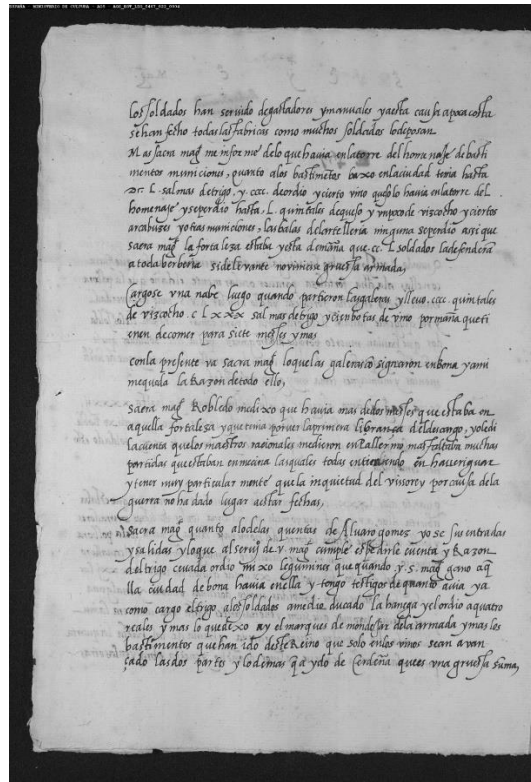 ESPAÑA - MINISTERIO DE CULTURA - AGS
los soldados han servido de gastadores y manuales y a esta causa a poca costa
se han fecho todas las fabricas como muchos soldados lo deposan
Mas sacra mag.t me informe de lo que havia en la torre del homenaje de basti
mentos municiones, quanto a los bastimētos baxo en la ciudad tenia hasta
L. salmas de trigo. y cccc. de ordio y cierto vino solo havia en la torre del
homenaje y se perdio hasta. L. quintales de queso y un poco de vizcocho y ciertos
arcabuzes y otras municiones, las balas del artelleria ninguna se perdio assi que
sacra mag.t la fortaleza estaba y esta de maña que cc L soldados la defenderā
a toda berberia si de levante no viniesse gruessa armada,
Cargose una nabe luego quando partieron las galeras y llevo. cccc. quintales
de vizcocho. c L x x x salmas de trigo y cien botas de vino por maña que ti
enen de comer para siete meses y mas
con la presente va sacra mag.t lo que las galeras cōsignaron en bona y a mi
me queda la Razon de todo ello,
Sacra mag.t Robledo me dixo que havia mas de dos meses que estaba en
aquella fortaleza y que tenia por ver la primera librança del descargo, yo le di
la cuenta que los maestros racionales me dieron en Pallermo mas faltava muchas
partidas que estaban en mecina las quales todas entiendo en haveriguar
y tener muy particular mente que la inquietud del vissorey por causa de la
guerra no ha dado lugar a estar fechas,
Sacra mag.t quanto a lo de las quentas de Alvaro gomes yo se sus entradas
y salidas y lo que al serv.º de. v. mag.t cumple es pedirle cuenta y Razon
del trigo cevada ordio legumines que quando. v. s. mag.t gano aq̄
lla ciudad de bona havia en ella y tengo testigos de quanto avia ya
como cargo el trigo a los soldados a medio ducado la hanega y el ordio a quatro
reales y mas lo que dexo ay el marques de mondejar de la armada y mas los
bastimentos que han ido deste Reino que solo en los vinos se an avan
çado las dos partes y lo demas q̄ a ydo de Cerdeña que es una gruessa suma,